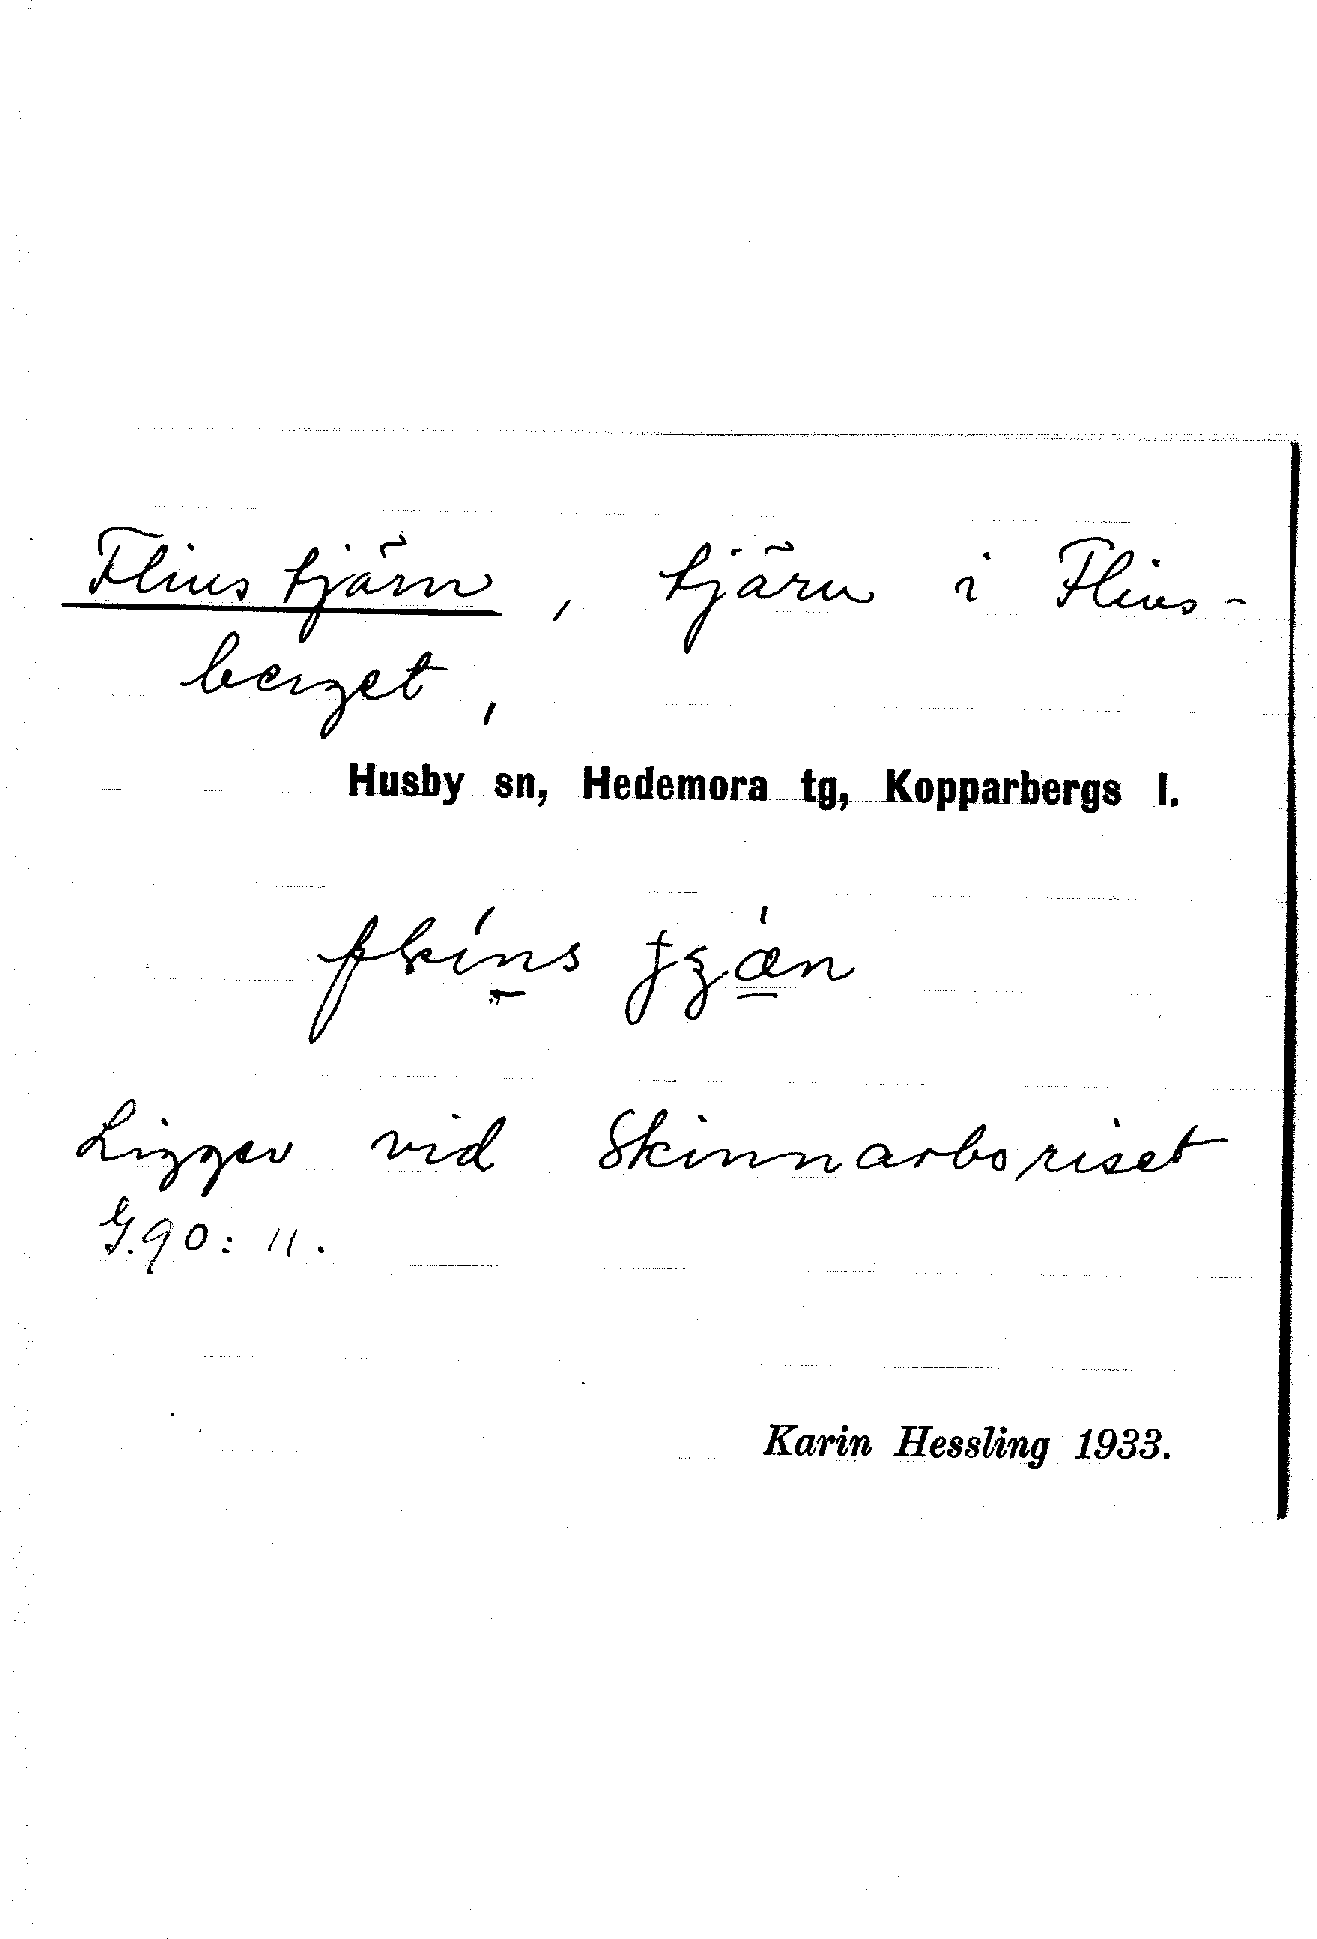 Flinstjärn, tjärn i Flins-
berget,
Husby sn, Hedemora tg, Kopparbergs l.
Ligger vid Skinnarboriset
G.90: 11.
Karin Hessling 1933.